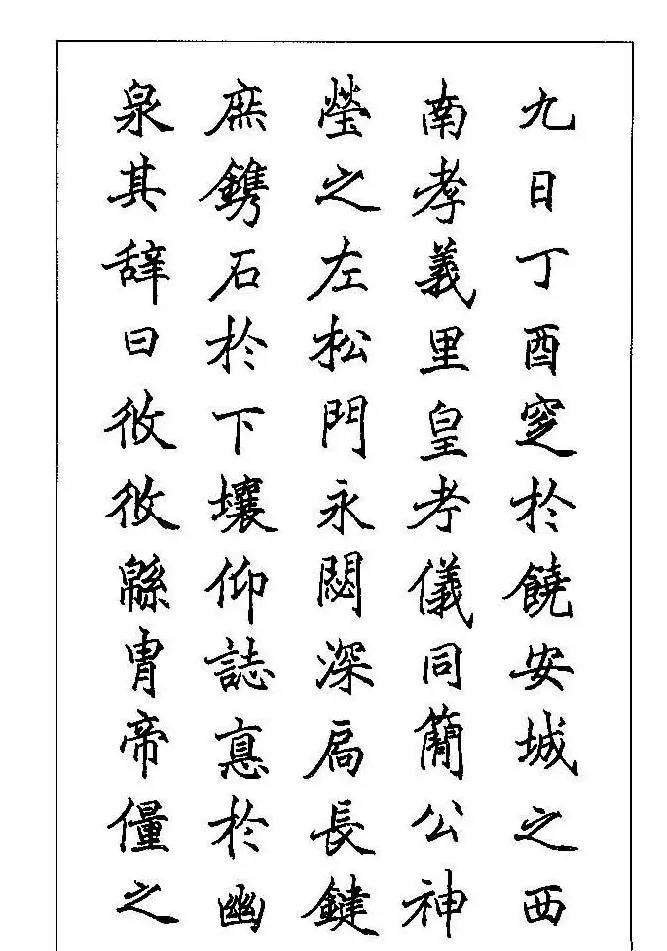 九日丁酉窆於饒安城之西
南孝義里皇考儀同簡公神
塋之左松門永閟深扃長鍵
庶鐫石於下壤仰誌悳於幽
泉其辞曰攸攸緜胄帝之